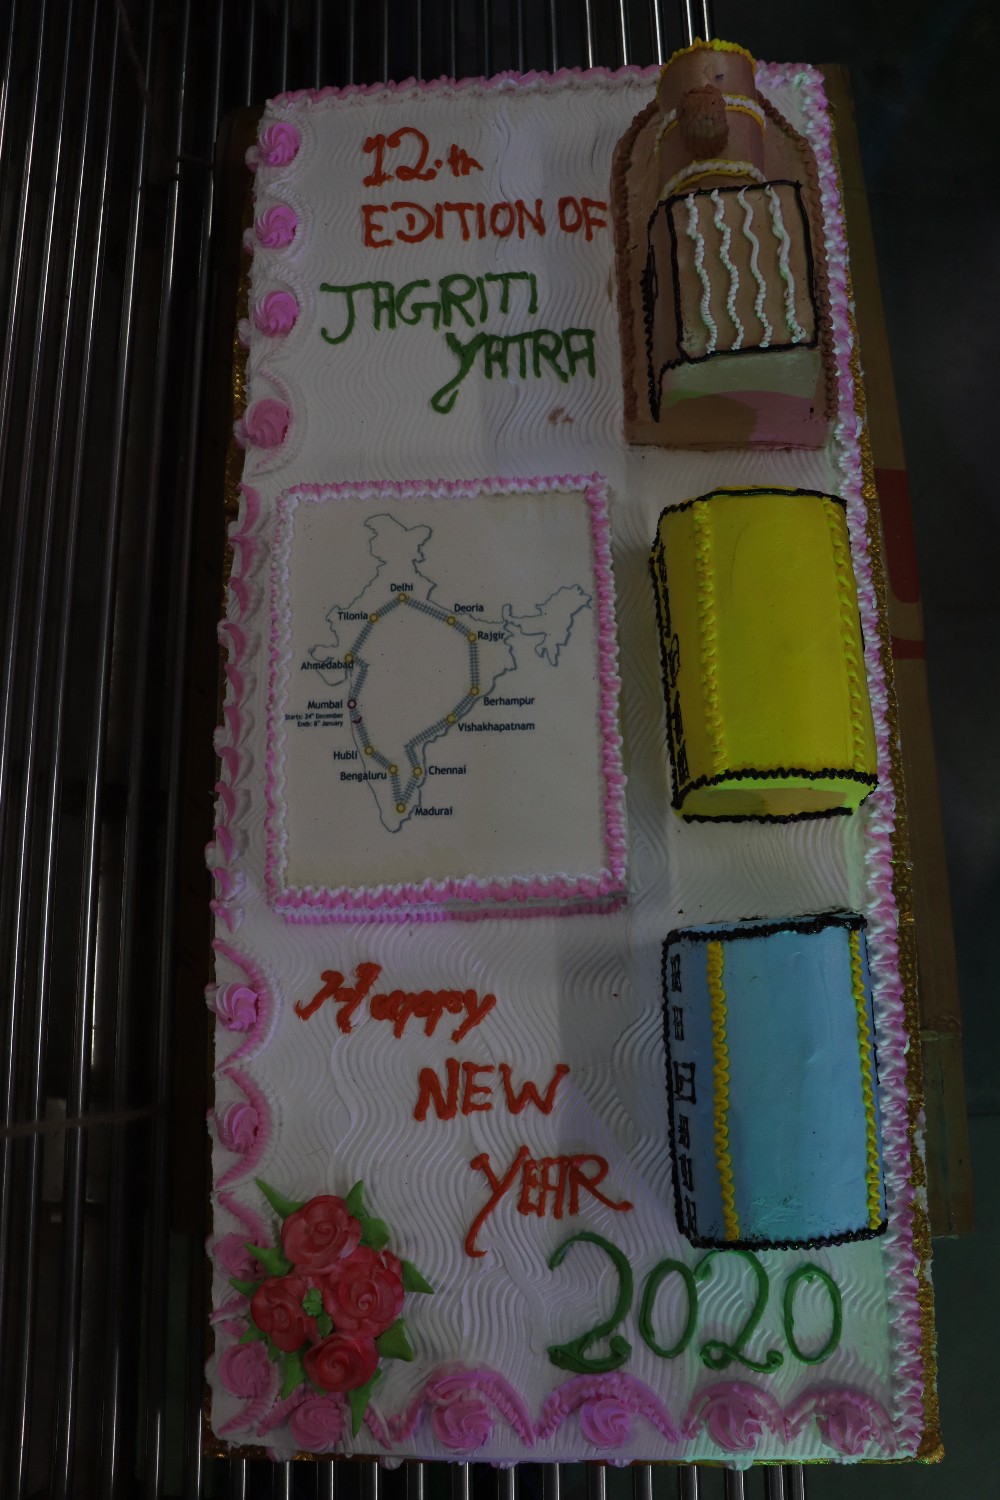 12.th
EDITION OF
JAGRITI
YATRA
Delhi
Tilonia
Deoria
Rajgir
Ahmedabad
Mumbai
Starts: 24th December
Ends: 8th January
Berhampur
Vishakhapatnam
Hubli
Bengaluru
Chennai
Madurai
Happy
NEW
YEAR
2020